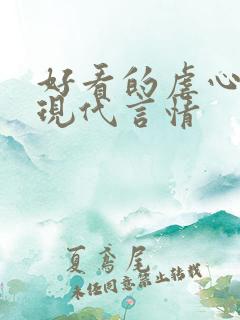 好看的虐心
現代言情
夏鸢尾
未经同意禁止转载